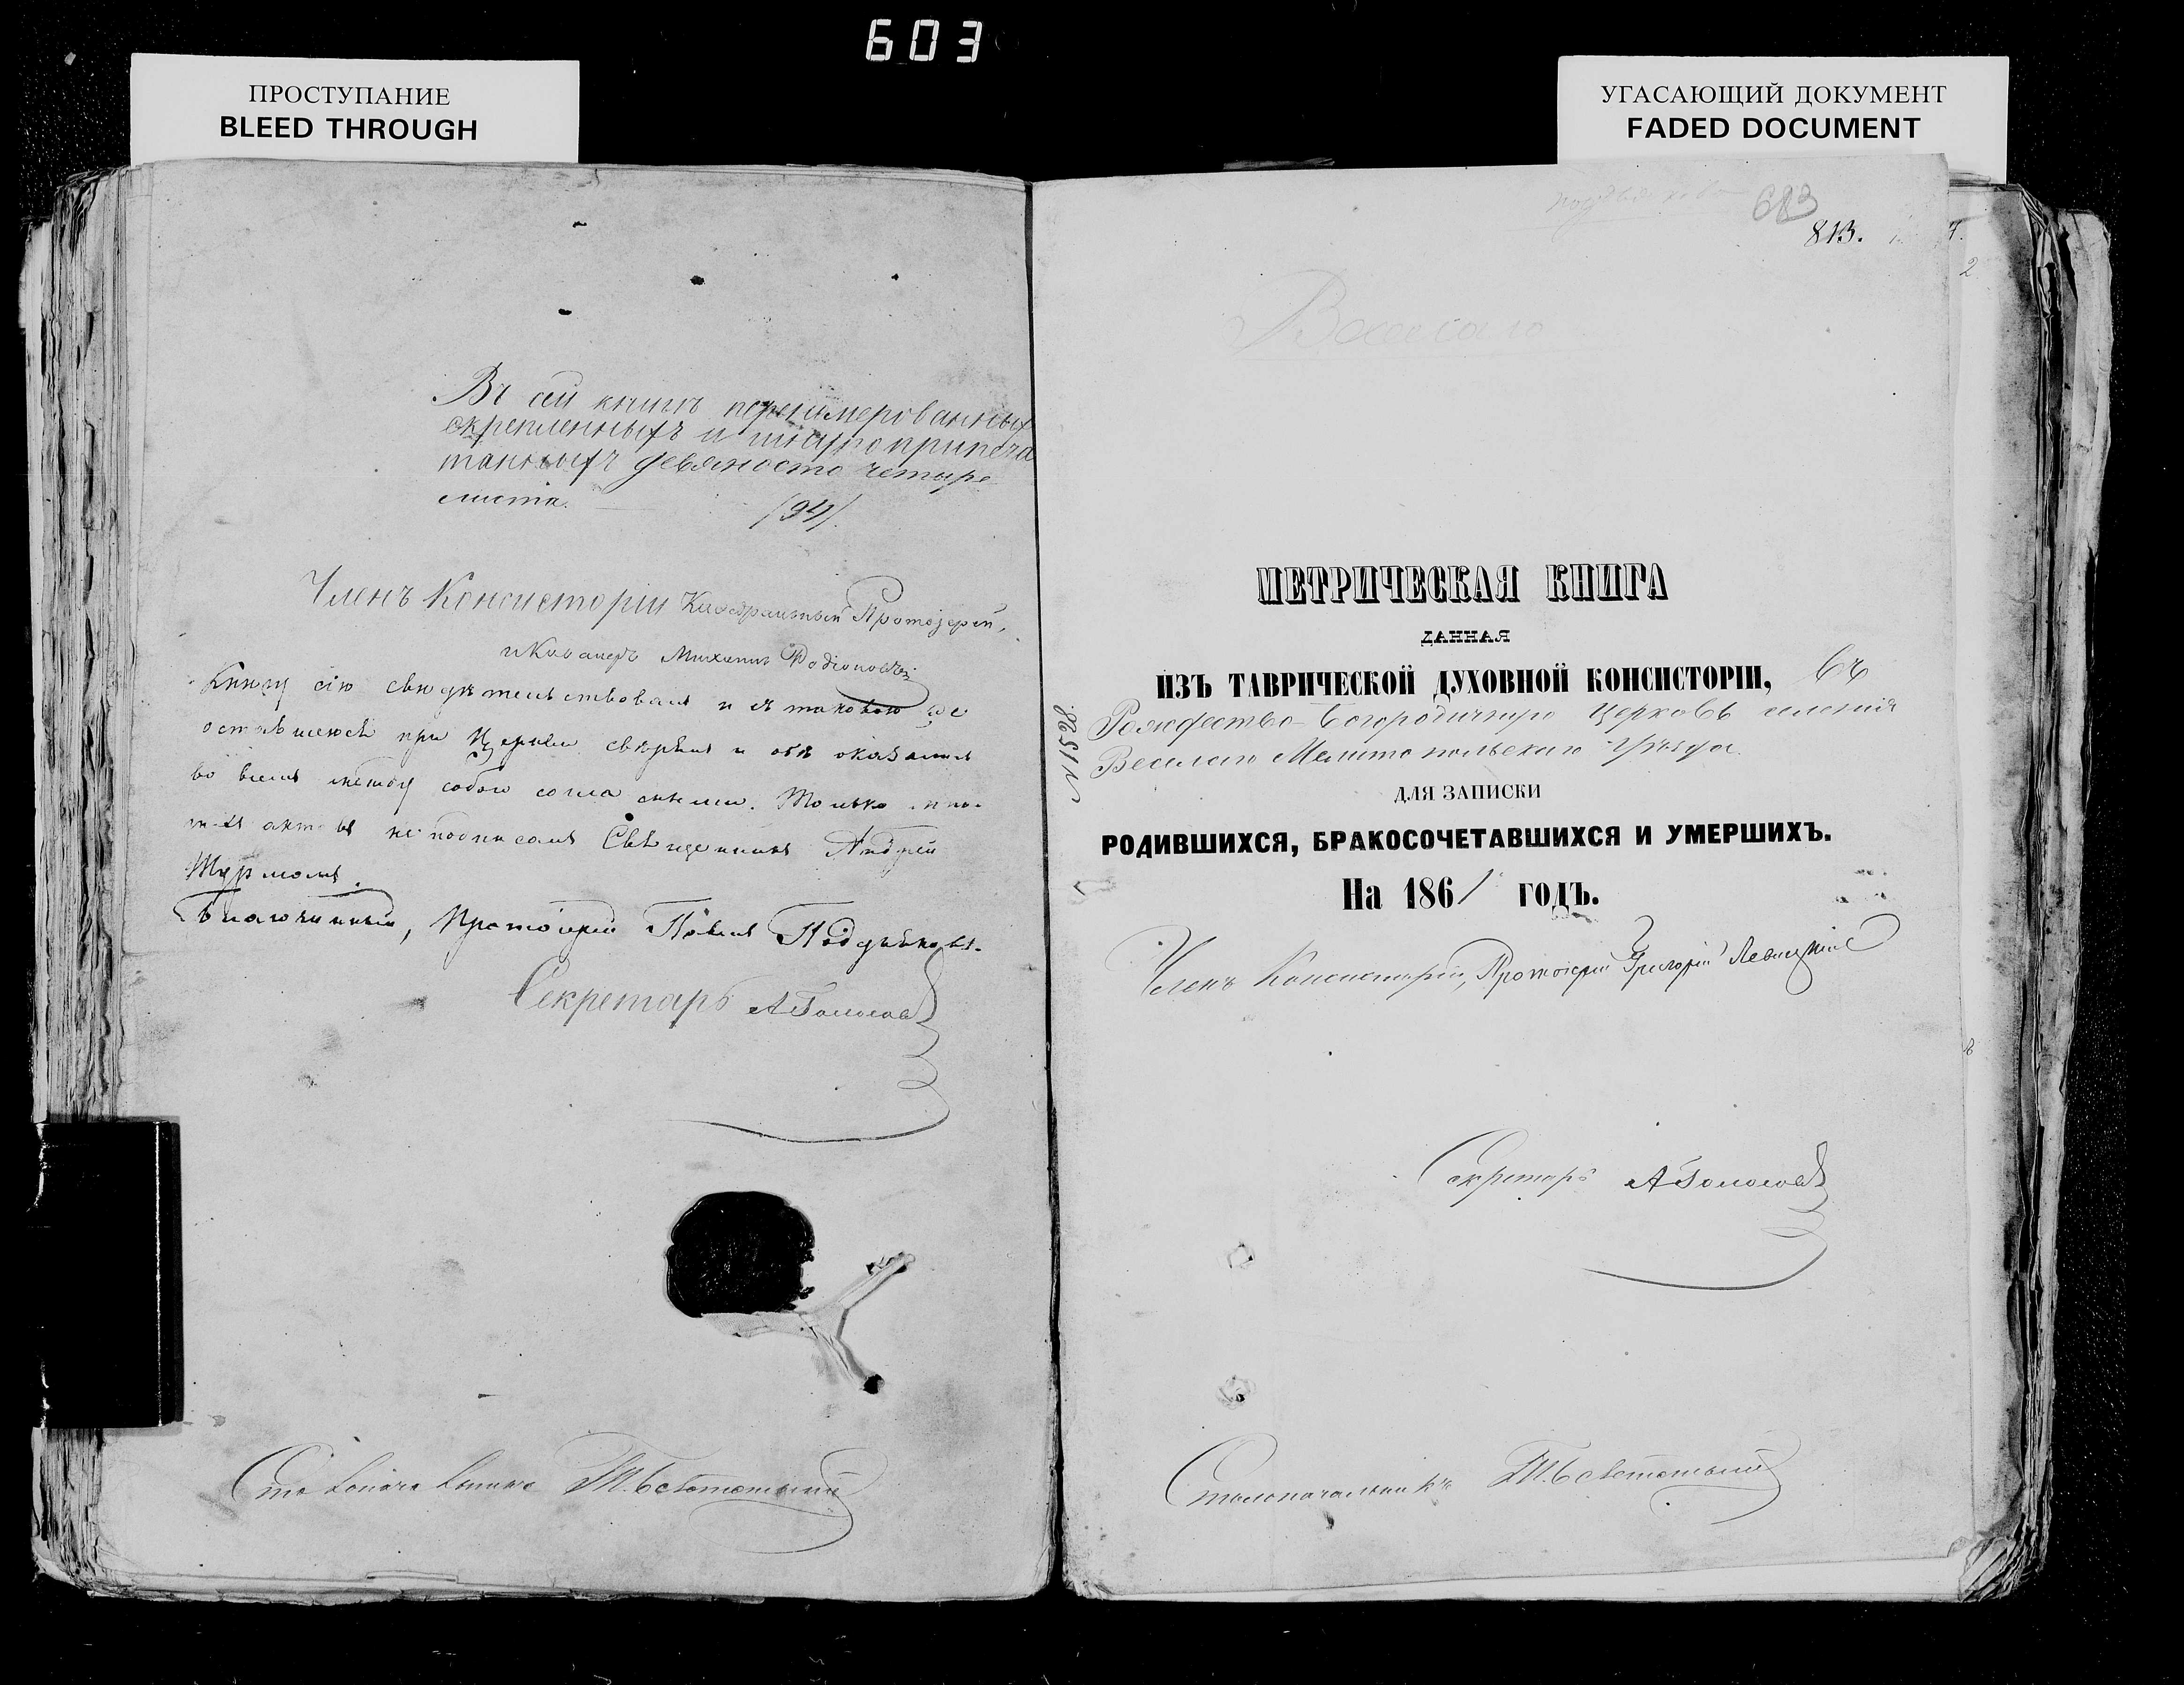 603
ПРОСТУПАНИЕ
BLEED THROUGH
УГАСАЮЩИЙ ДОКУМЕНТ
FADED DOCUMENT
Въ сей книгѣ перенумерованныхъ
скрепленныхъ и шнуроприпеча
танныхъ девяносто четыре
листа.
/94/.
Членъ Консисторіи Каѳедральный Протоіерей,
и Кавалеръ Михаилъ Родіоновъ
Книгу сію свидѣтельствовалъ и съ таковою же
оставшеюся при Церкви свѣрялъ и обѣ оказались
во всемъ между собою согласными. Только
акты не подписалъ Священникъ Андрей
Благочинный, Протоіерей Павелъ
Секретарь
Столоначальникъ
683
813.
2
Веселаго
МЕТРИЧЕСКАЯ КНИГА
ДАННАЯ
ИЗЪ ТАВРИЧЕСКОЙ ДУХОВНОЙ КОНСИСТОРІИ, въ
Рождество-Богородичную церковь селенія
Веселаго Мелитопольскаго Уѣзда.
ДЛЯ ЗАПИСКИ
РОДИВШИХСЯ, БРАКОСОЧЕТАВШИХСЯ И УМЕРШИХЪ.
На 1861 ГОДЪ.
Членъ Консисторіи, Протоіерей Григорій Левицкій
Секретарь
Столоначальникъ